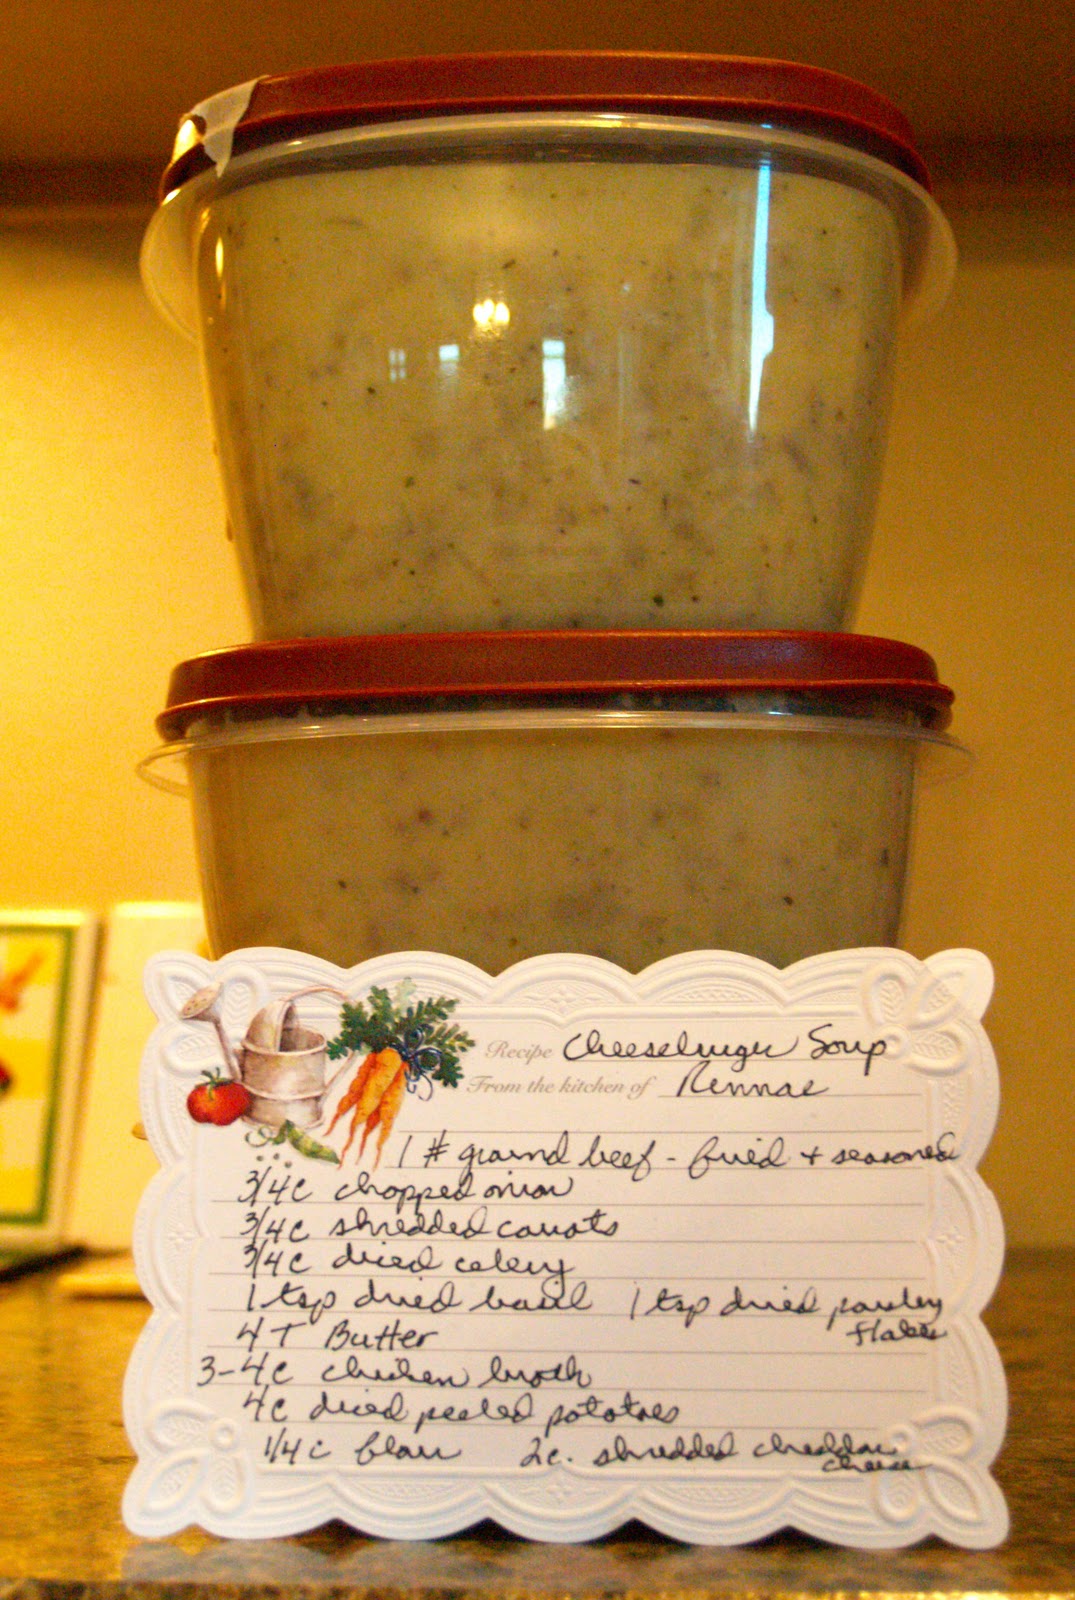 Recipe Cheeseburger Soup
From the kitchen of Rennae
1 # ground beef - fried + seasoned
3/4 c chopped onion
3/4 c shredded carrots
3/4 c diced celery
1 tsp dried basil 1 tsp dried parsley
flakes
4 T Butter
3-4 c chicken broth
4c diced peeled potatoes
1/4 c flour 2c. shredded cheddar
cheese